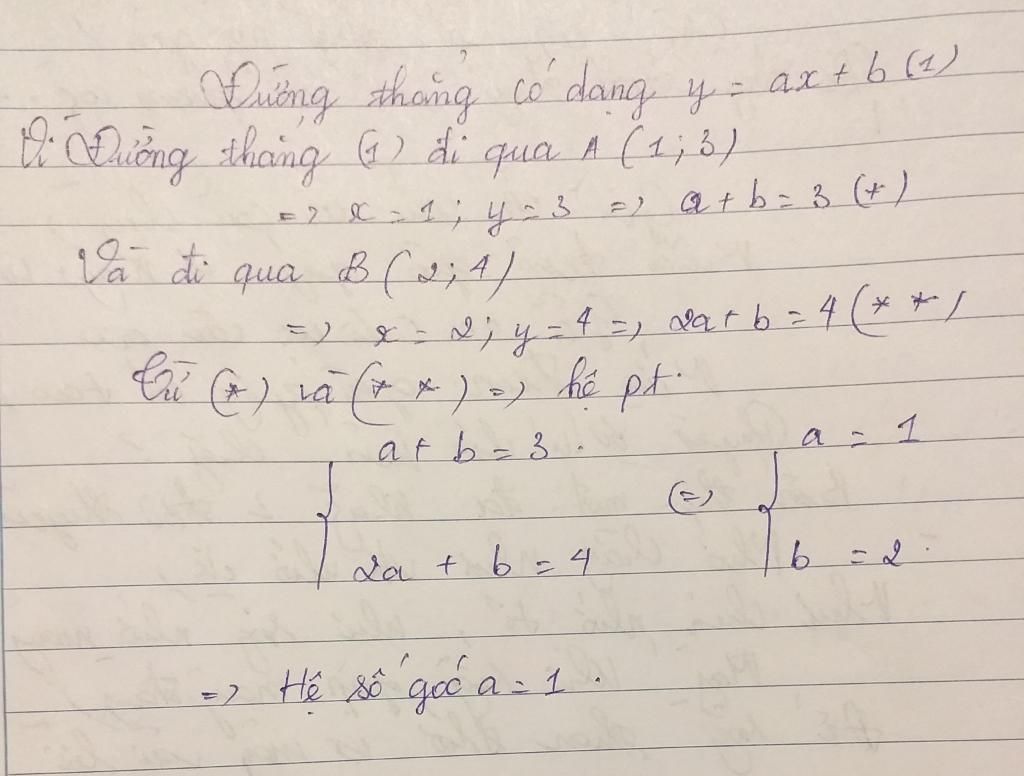 Đường thẳng có dạng y = ax + b (1)
Vì Đường thẳng (1) đi qua A (1; 3)
=> x = 1; y = 3 => a + b = 3 (*)
Và đi qua B (2; 4)
=> x = 2; y = 4 => 2a + b = 4 (* *)
Từ (*) và (* *) => hệ pt.
a + b = 3. a = 1
{ (=) {
2a + b = 4 b = 2.
=> Hệ số góc a = 1.